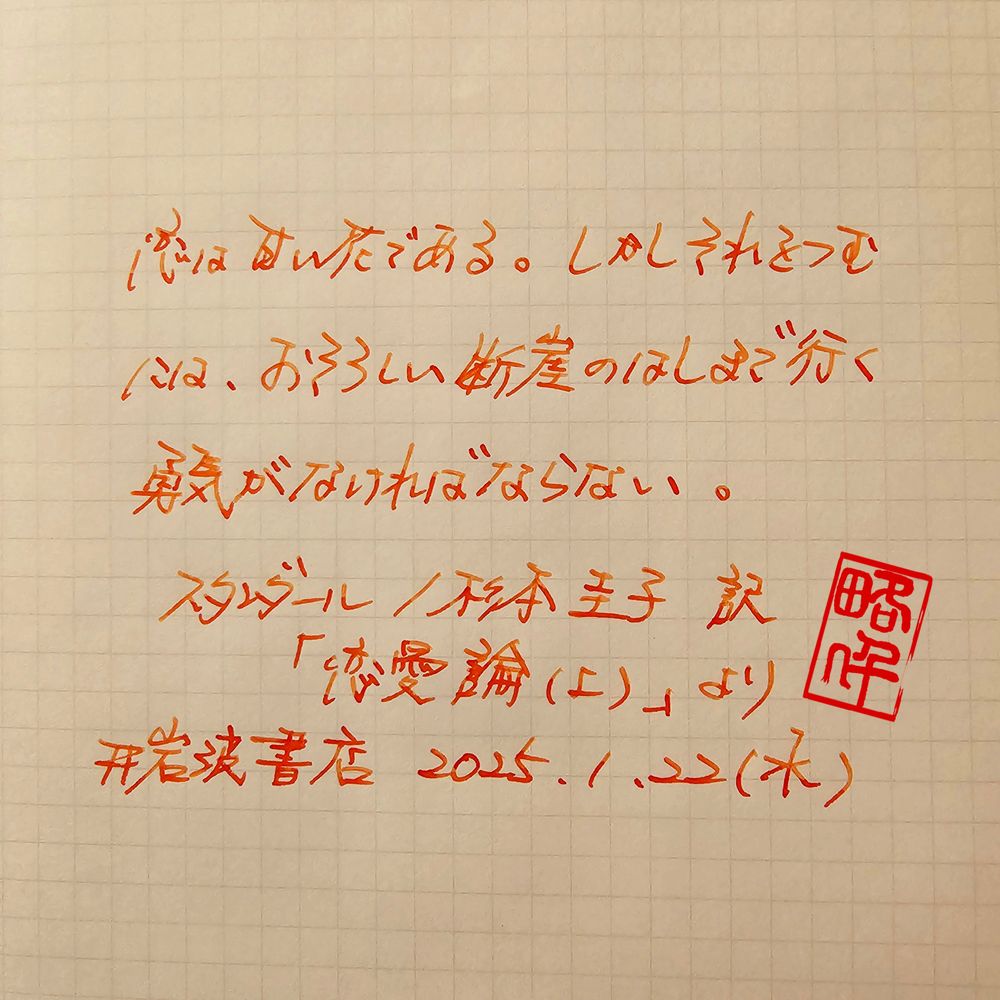 恋は甘い花である。しかしそれをつむ
には、おそろしい断崖のはしまで行く
勇気がなければならない。
スタンダール／杉本圭子 訳
「恋愛論（上）」より
#岩波書店 2025.1.22(水)